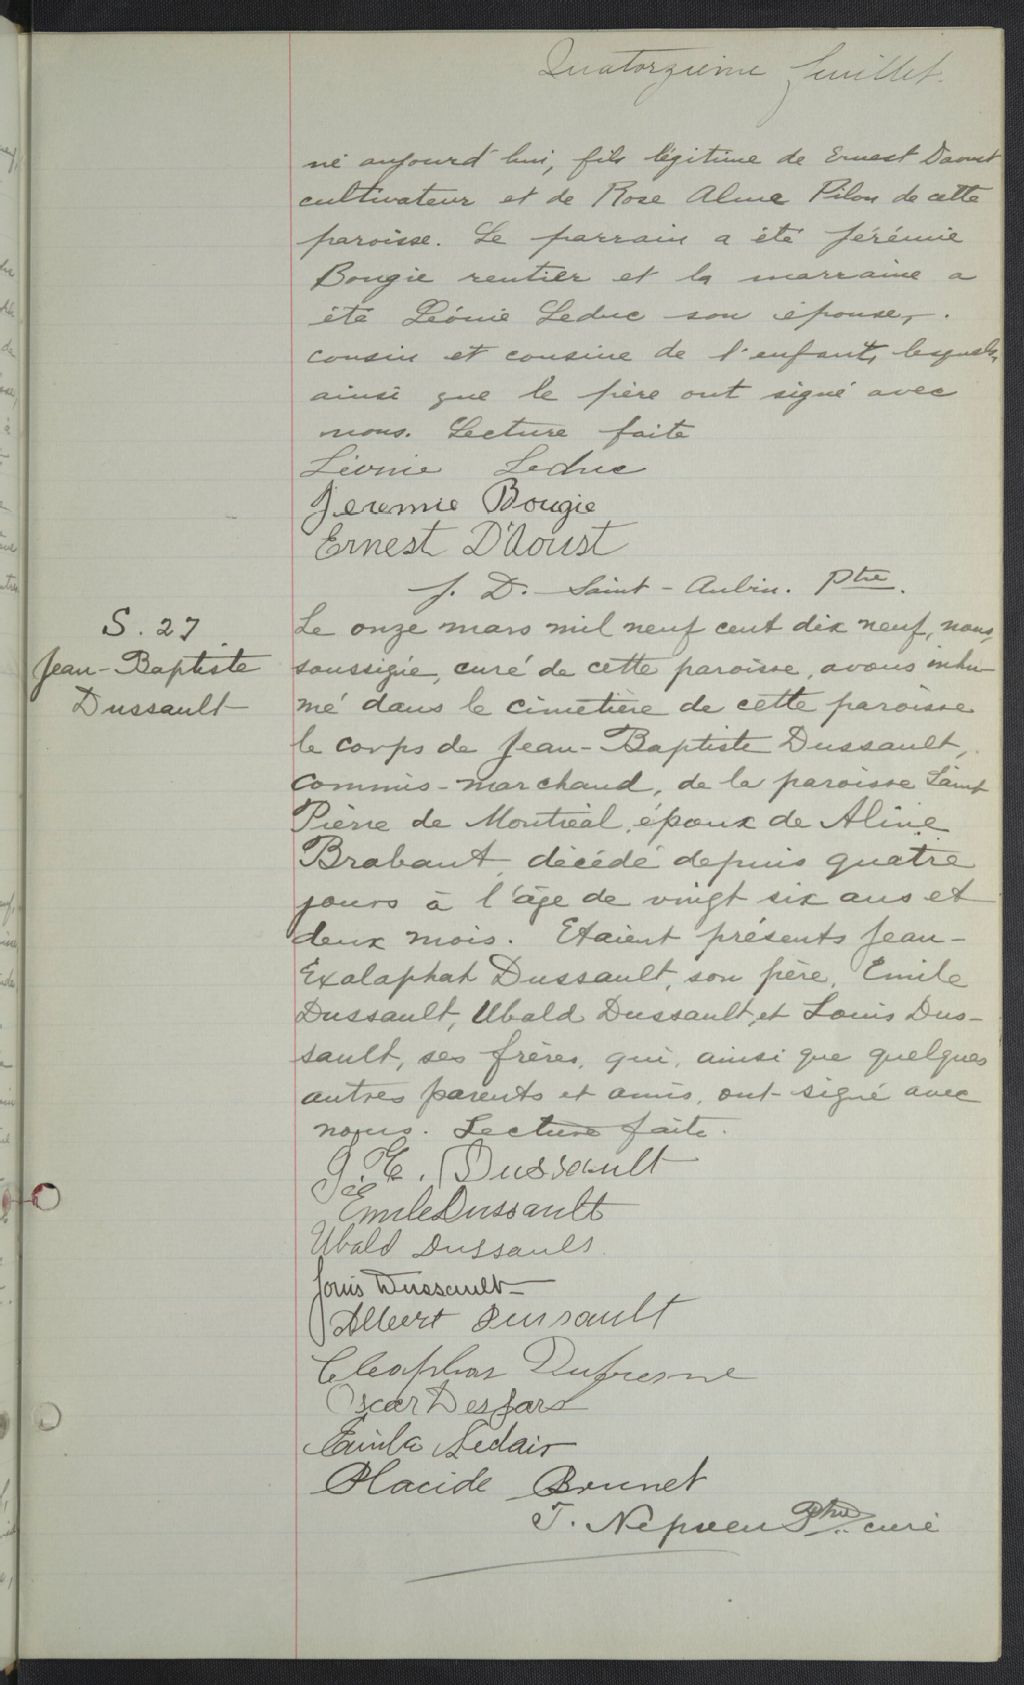 Quatorzième feuillet.
né aujourd'hui, fils légitime de Ernest Daoust
cultivateur et de Rose Alma Pilon de cette
paroisse. Le parrain a été Jérémie
Bougie rentier et la marraine a
été Léonie Leduc son épouse,
cousin et cousine de l'enfant, lesquels,
ainsi que le père ont signé avec
nous. Lecture faite
Léonie Leduc
Jeremie Bougie
Ernest D'Aoust
J. D. Saint-Aubin. Ptre.
S. 27
Jean-Baptiste
Dussault
Le onze mars mil neuf cent dix neuf, nous,
soussigné, curé de cette paroisse, avons inhu-
mé dans le cimetière de cette paroisse
le corps de Jean-Baptiste Dussault,
commis-marchand, de la paroisse Saint
Pierre de Montréal, époux de Aline
Brabant, décédé depuis quatre
jours à l'âge de vingt six ans et
deux mois. Etaient présents Jean-
Exalaphat Dussault, son père, Emile
Dussault, Ubald Dussault, et Louis Dus-
sault, ses frères, qui, ainsi que quelques
autres parents et amis, ont signé avec
nous. Lecture faite.
J. E. Dussault
Emile Dussault
Ubald Dussault
Louis Dussault
Albert Dussault
Cleophas Dufresne
Oscar Desjars
Leclair
Placide Brunet
T. Nepveu Ptre curé